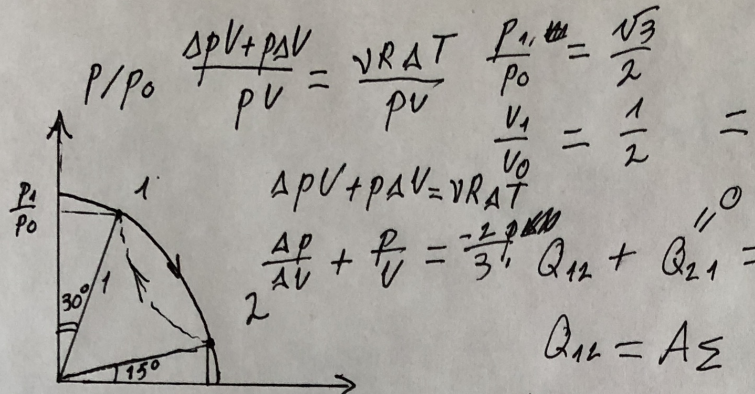 p/p₀ (ΔpV+pΔV)/(pV) = (νRΔT)/(pV) p₁/p₀ = √3/2
V₁/V₀ = 1/2 =
ΔpV+pΔV=νRΔT
p₁/p₀ 1
2 Δp/ΔV + p/V = -2p/3 Q₁₂ + Q₂₁ =
"0
30° 1
Q₁₂ = A_Σ
15°